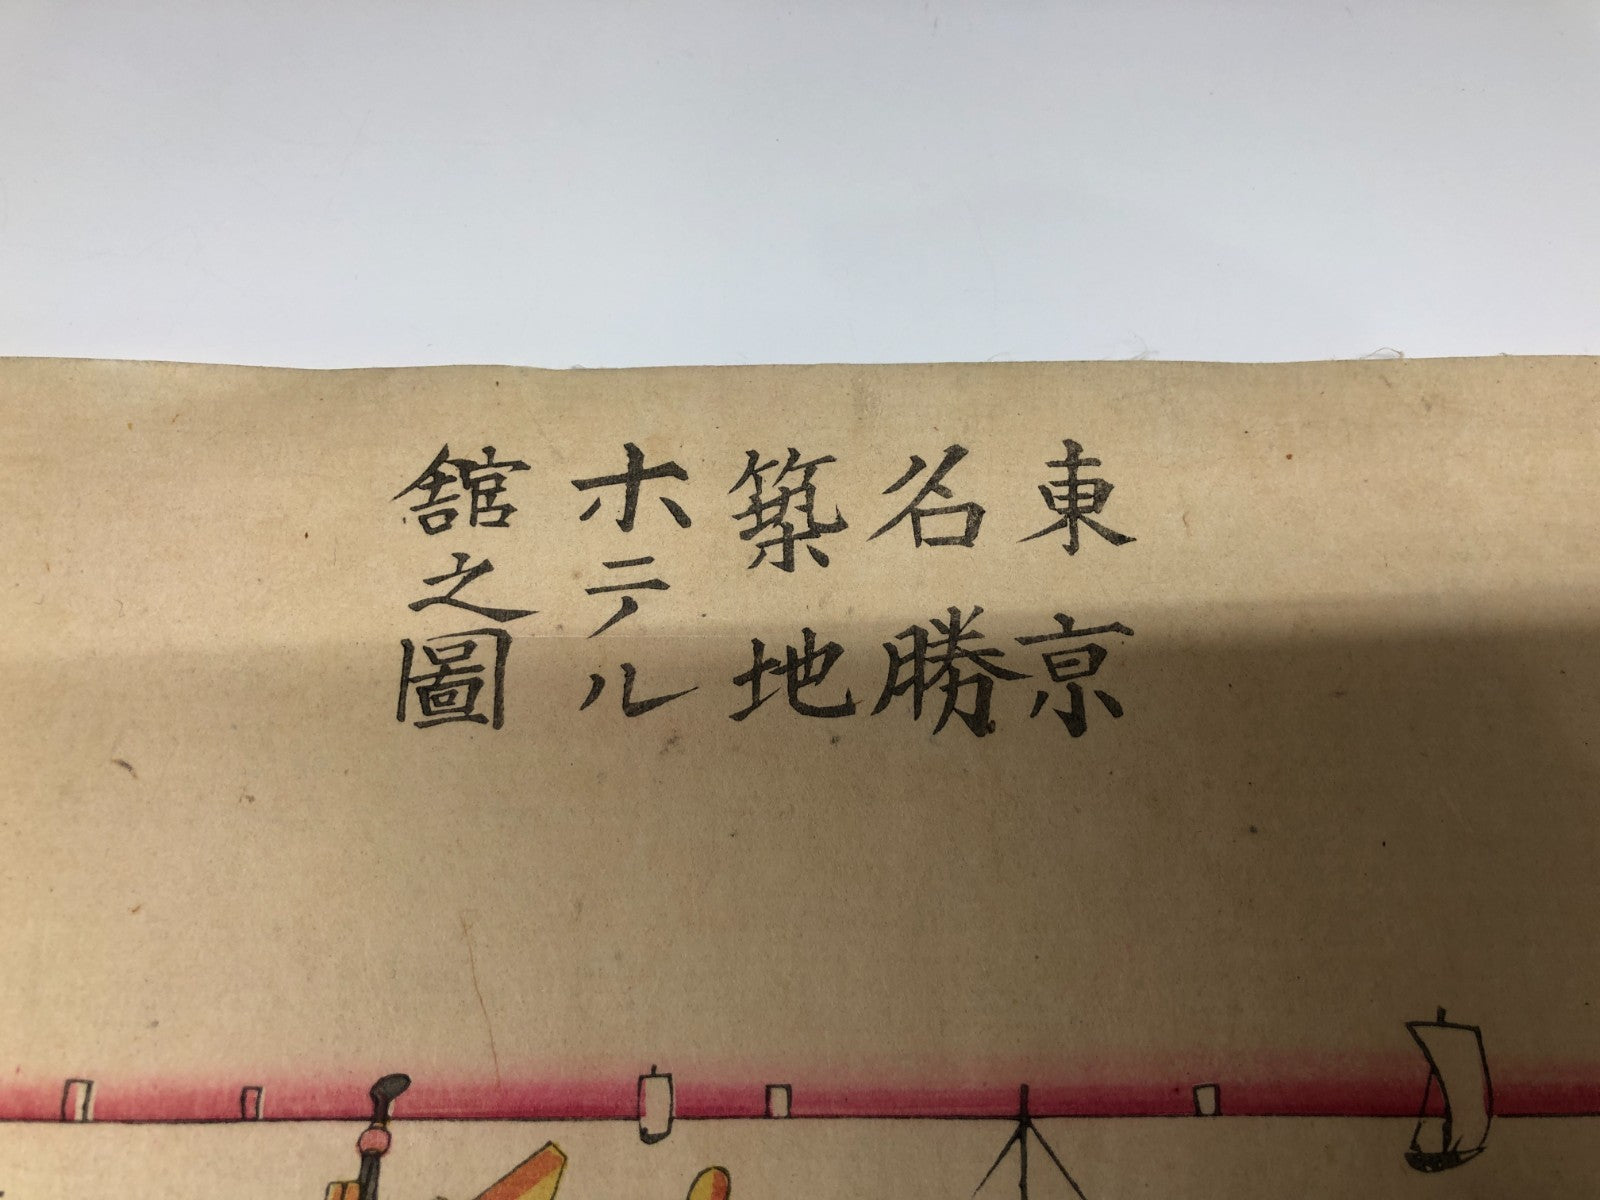 東亰
名勝
築地
ホテル
舘之圖